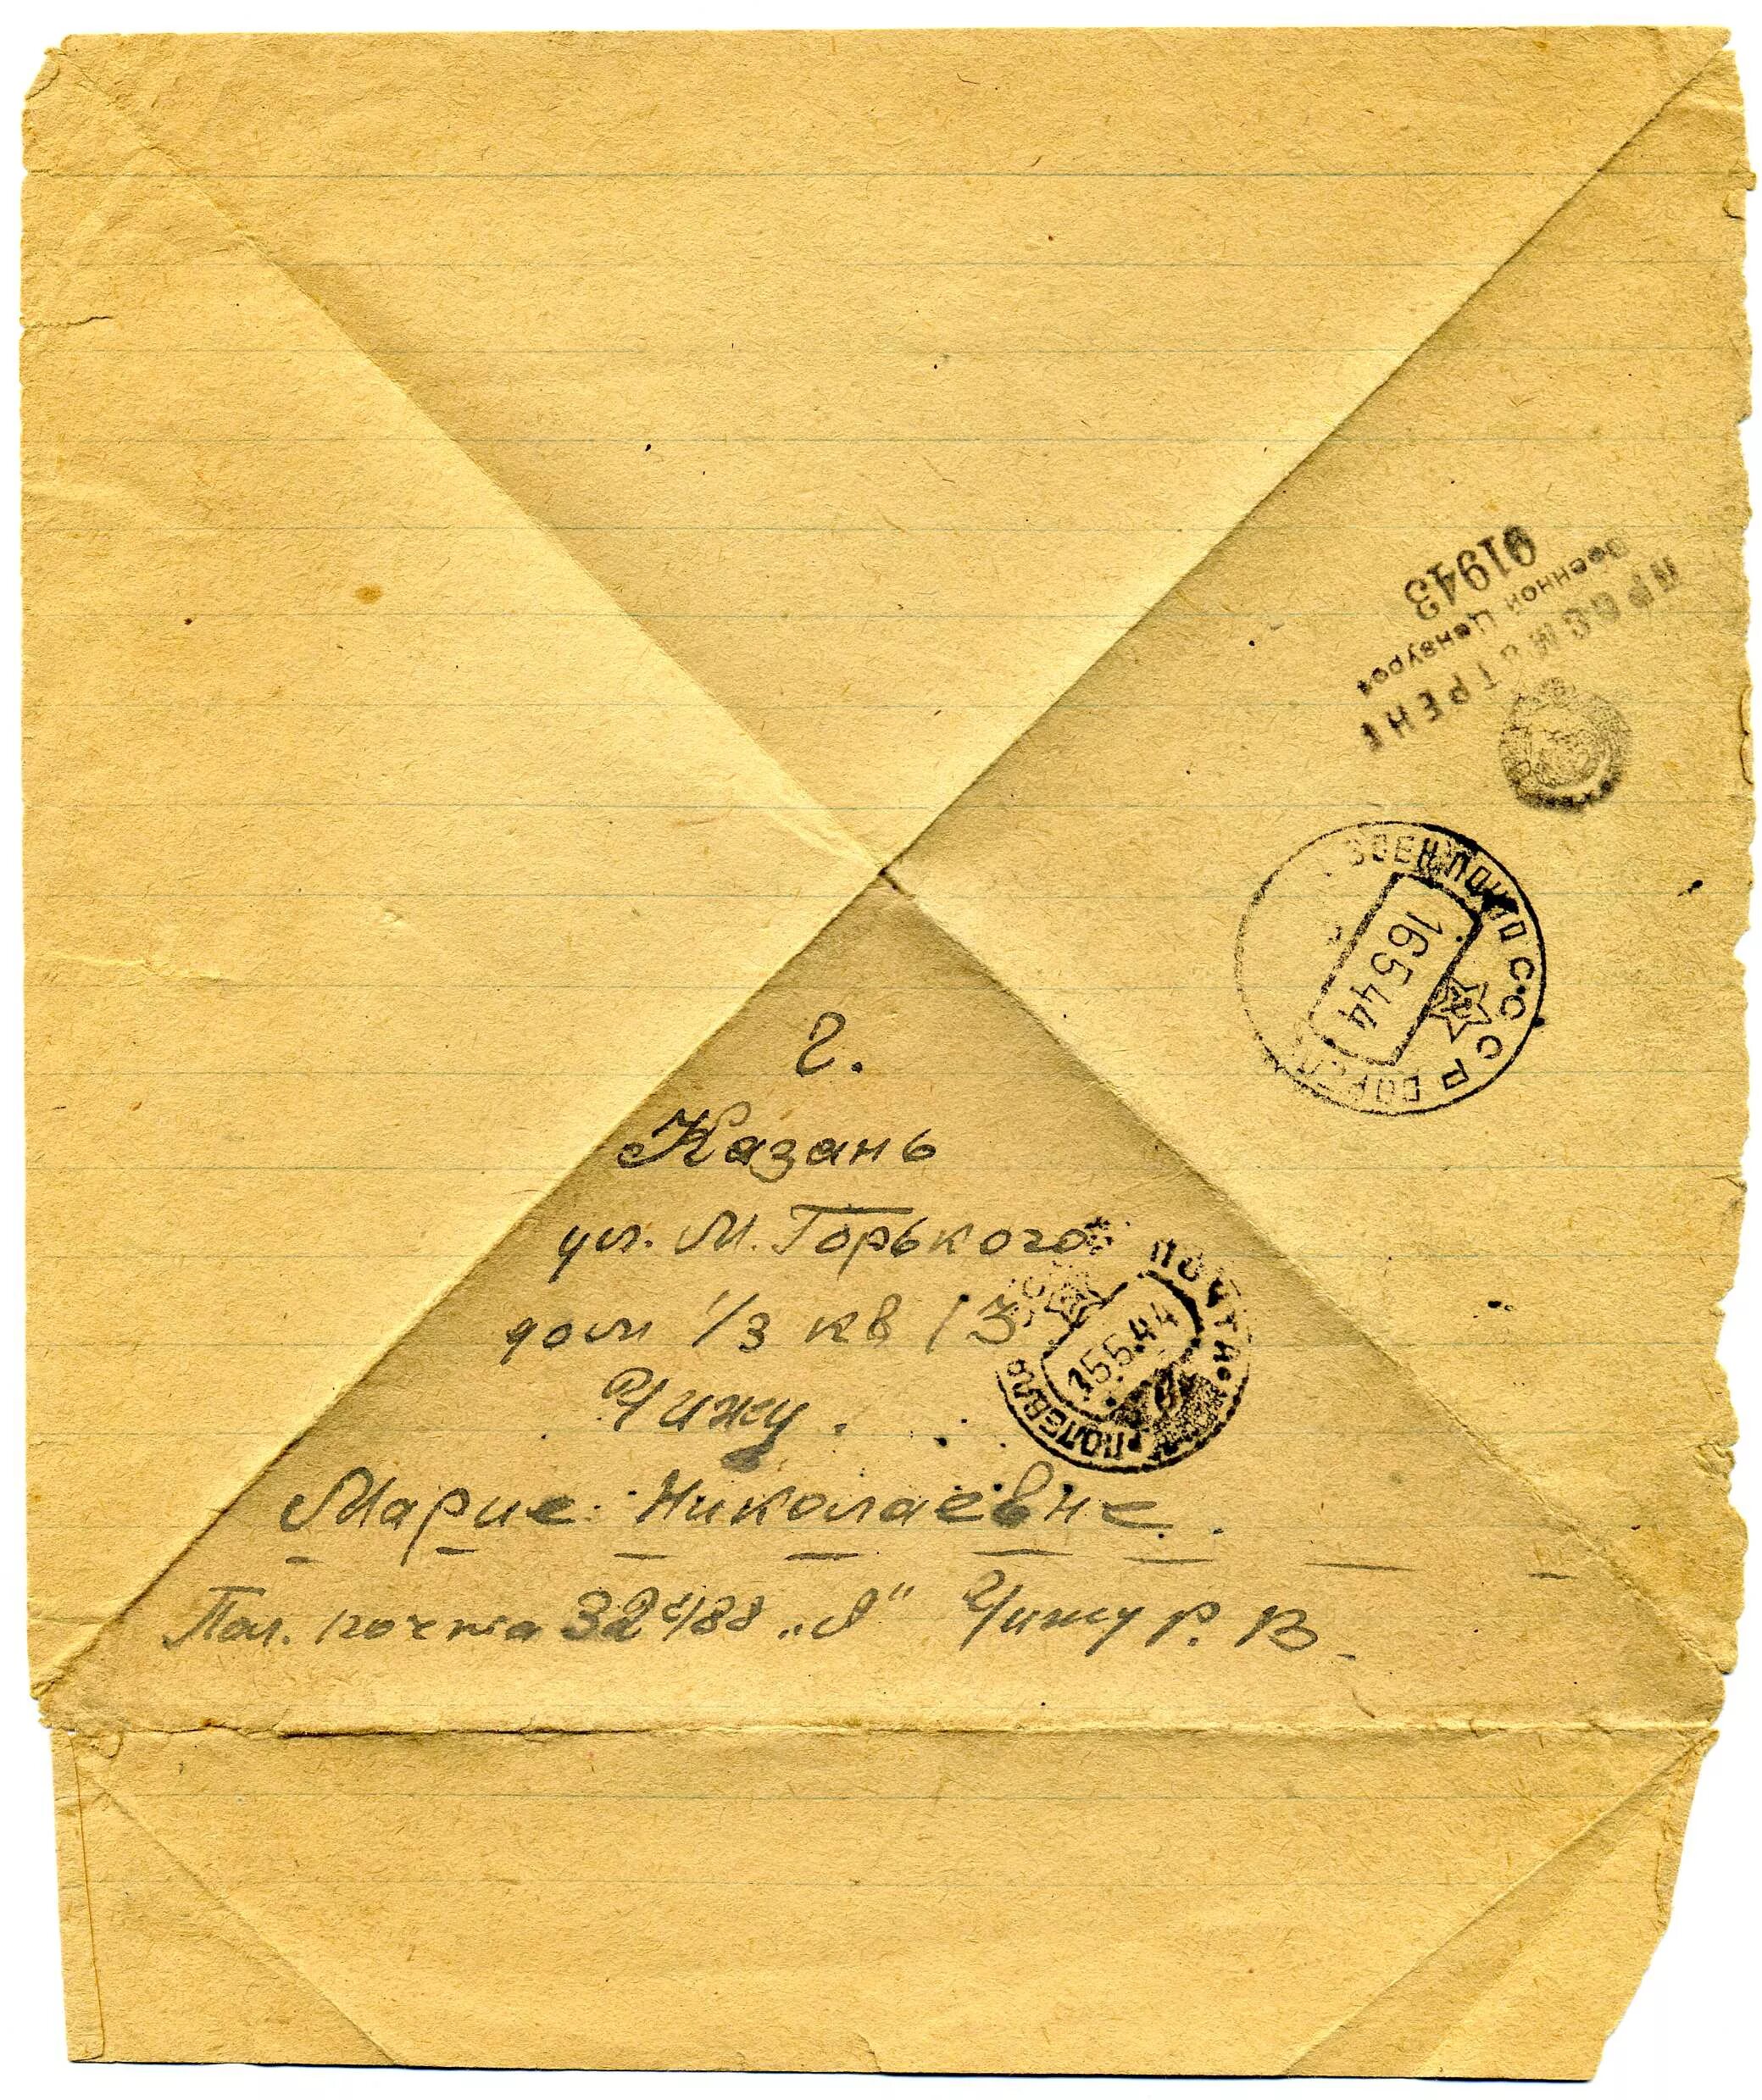 ПРОСМОТРЕНО
Военной Цензурой
91943
ВОЕН
СССР
16 5 44
г.
Казань
ул. М. Горького
дом 1/3 кв 13
Чижу.
ПОЛЕВАЯ ПОЧТА
15 5 44
Марие Николаевне.
Пол. почта 32488 „д" Чижу Р. В.